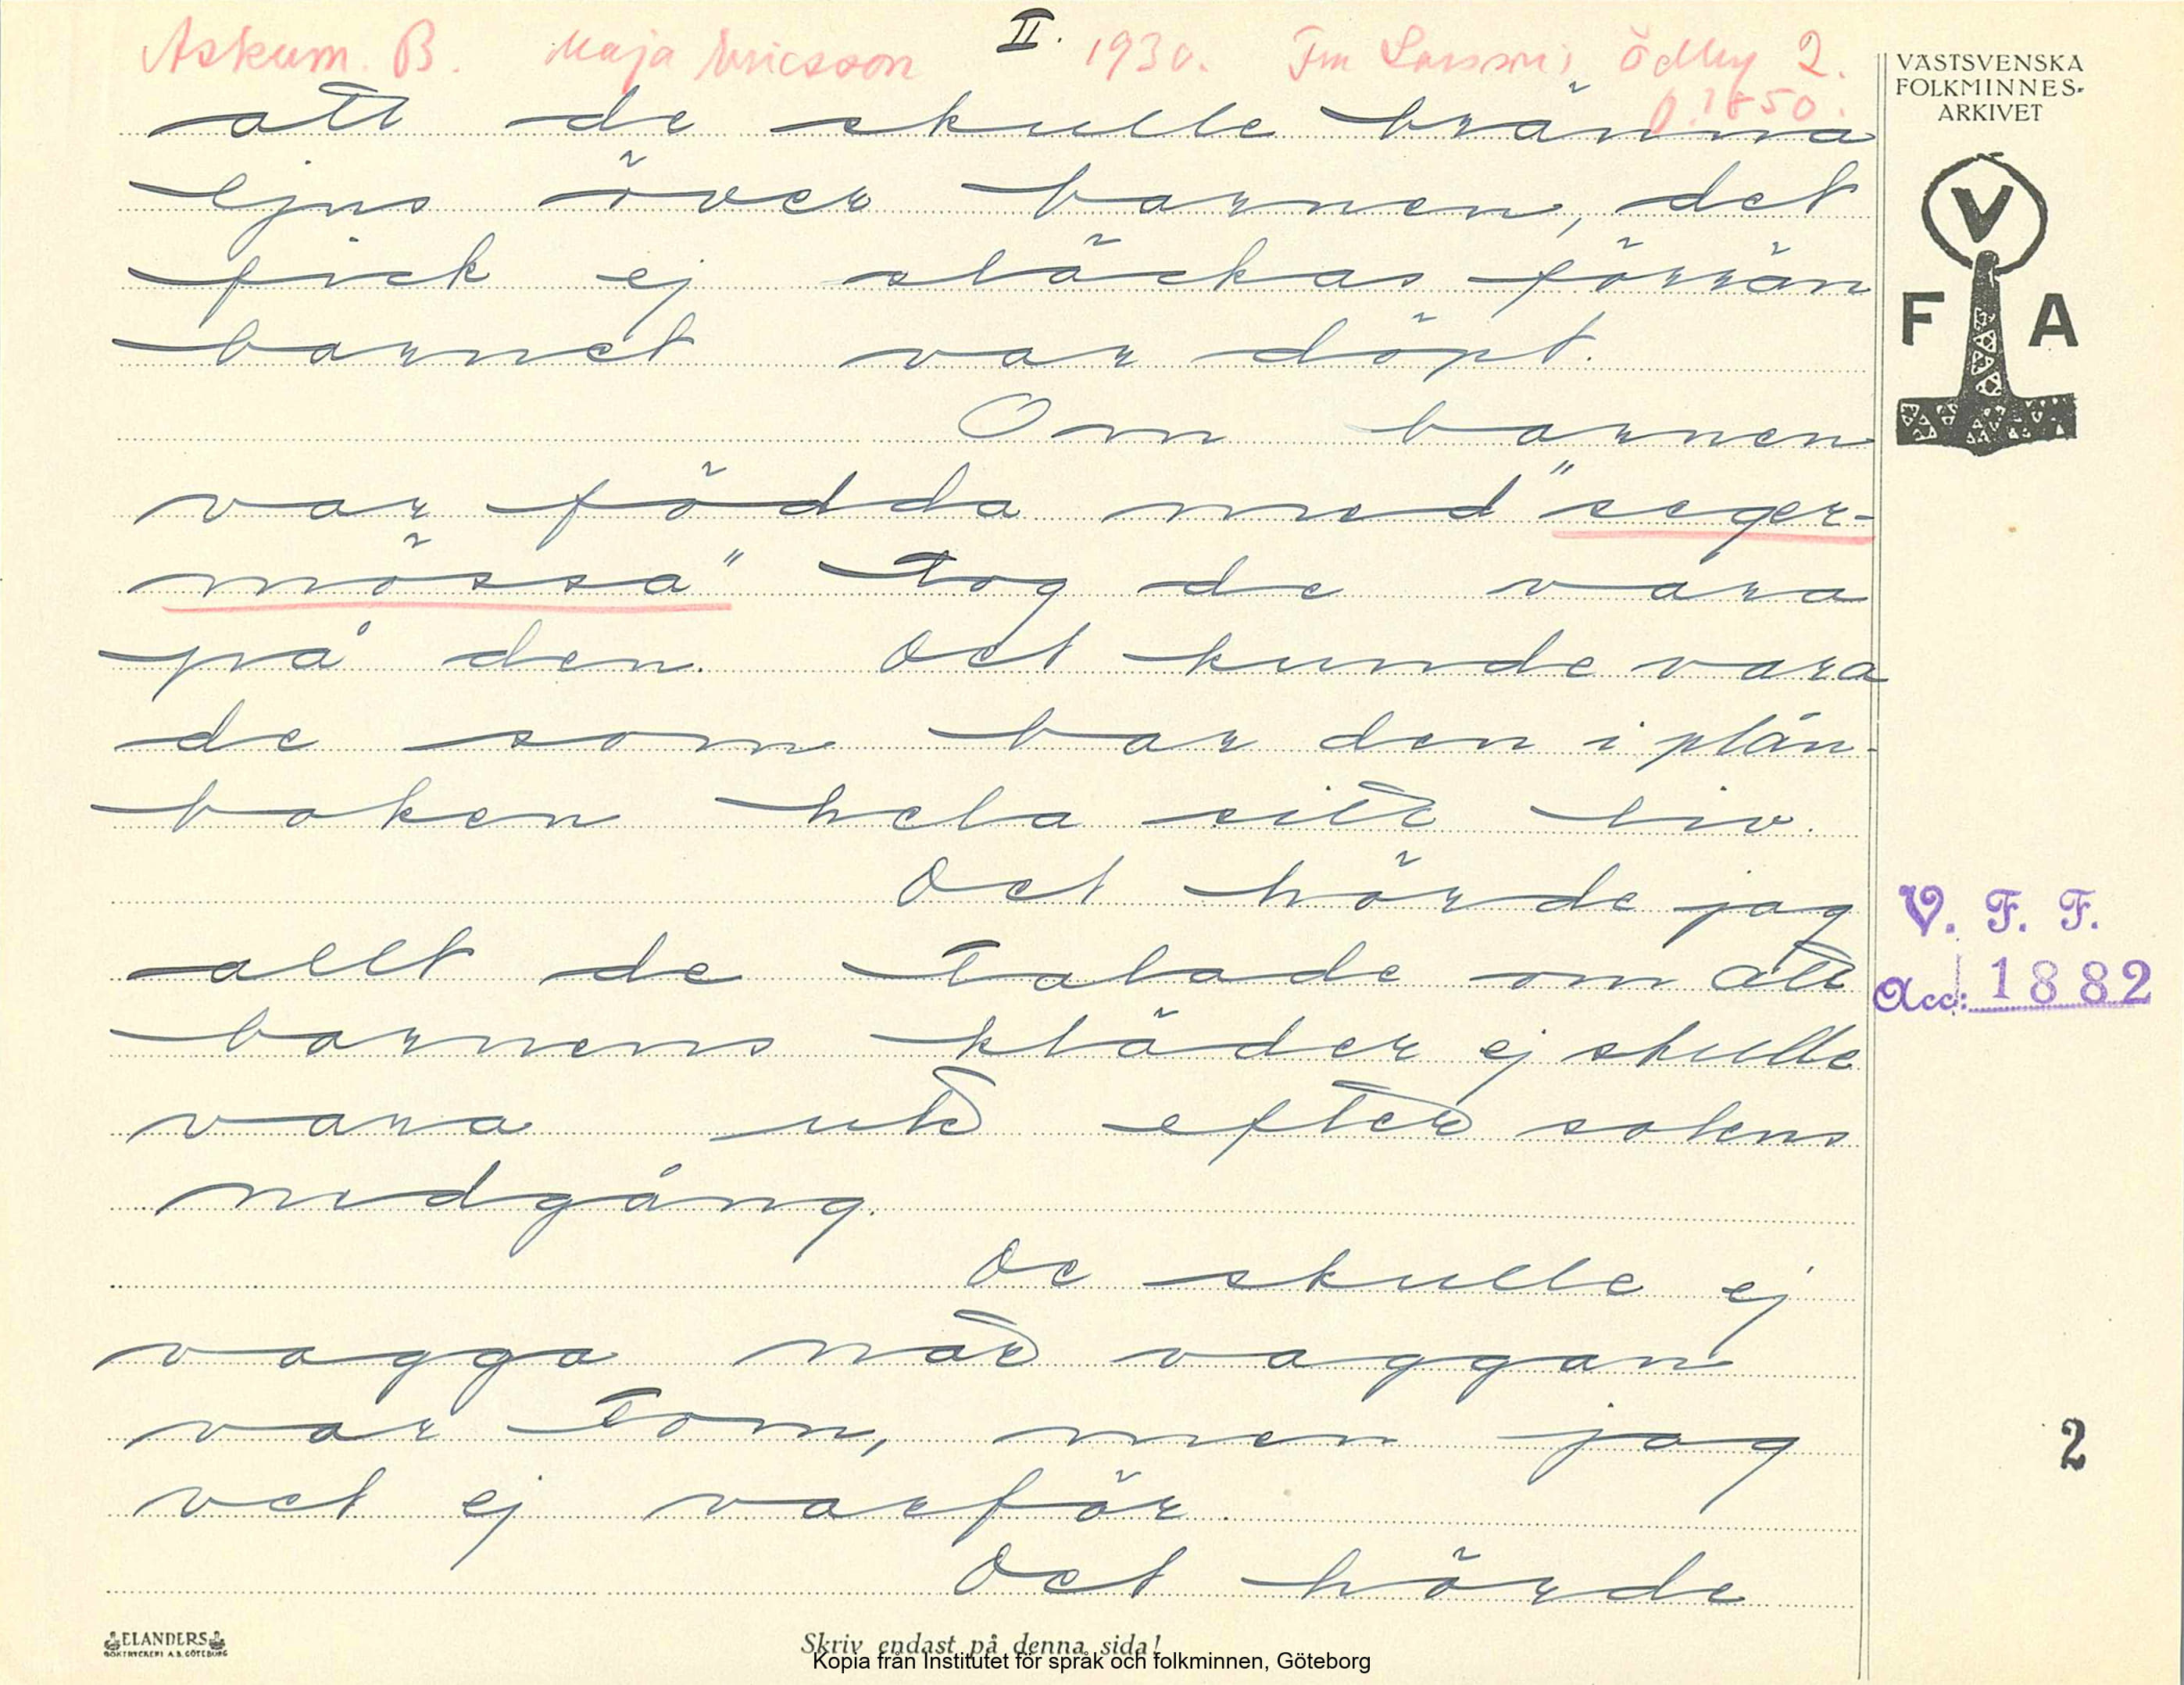 II.
Askum. B. Maja Ericsson 1930. Fru Larsson, Ödby 2.
f. 1850.
VÄSTSVENSKA
FOLKMINNES-
ARKIVET
V
F A
att de skulle bränna
ljus över barnen, det
fick ej släckas förrän
barnet var döpt.
Om barnen
var födda med "seger-
mössa" tog de vara
på den. Det kunde vara
de som bar den i plån-
boken hela sitt liv.
Det hörde jag
allt de talade om att
barnens kläder ej skulle
vara ute efter solens
nedgång.
De skulle ej
vagga när vaggan
var tom, men jag
vet ej varför.
Det hörde
V. F. F.
Acc: 1882
2
ELANDERS
BOKTRYCKERI A.B. GÖTEBORG
Skriv endast på denna sida!
Kopia från Institutet för språk och folkminnen, Göteborg